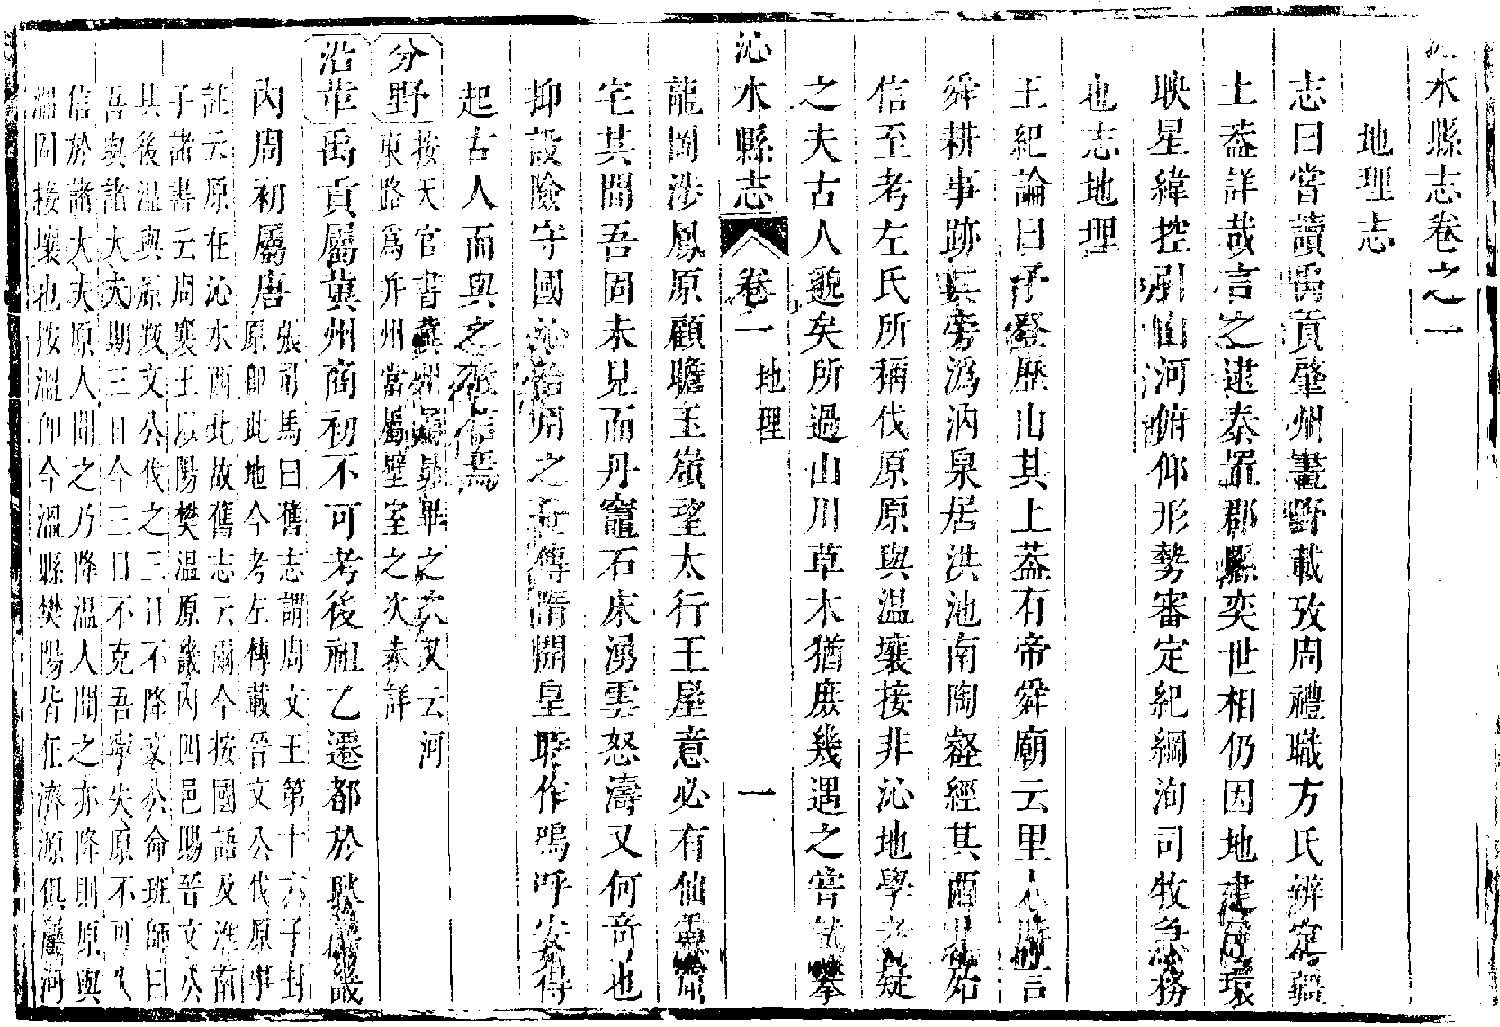 沁水縣志卷之一
地理志
志曰嘗讀禹貢肇州畫野載攷周禮職方氏辨定疆
土蓋詳哉言之逮秦置郡縣奕世相仍因地建 環
映星緯控引山河俯仰形勢審定紀綱洵司牧急務
也志地理
王紀論曰予登歷山其上蓋有帝舜廟云里人 言
舜耕事跡 旁溈汭泉居洪池南陶壑經其西 始
信至考左氏所稱伐原原與温壤接非沁地學 疑
之夫古人邈矣所過山川草木猶庶幾遇之嘗 攀
沁水縣志 卷一 地理 一
龍岡涉鳳原顧瞻玉嶺望太行王屋意必有仙靈窟
宅其間吾固未見而丹竈石床湧雲怒濤又何奇也
抑設險守國沁 州之 傳隋開皇 作嗚呼安得
起古人而與之 信焉
分野 按天官書冀州屬昴畢之次又云河
東路為并州當屬壁室之次未詳
沿革 禹貢屬冀州商初不可考後祖乙遷都於耿 畿
內周初屬唐 張司馬曰舊志謂周文王第十六子封
原即此地今考左傳載晉文公伐原事
註云原在沁水西北故舊志云爾今按國語及淮南
子諸書云周襄王以陽樊温原畿內四邑賜晉文公
其後温與原叛文公伐之三日不降文公命班師曰
吾與諸大夫期三日今三日不克吾 失原不可失
信於諸大夫原人聞之乃降温人聞之亦降則原與
温固接壤也按温卽今温縣樊陽皆在濟源俱屬河